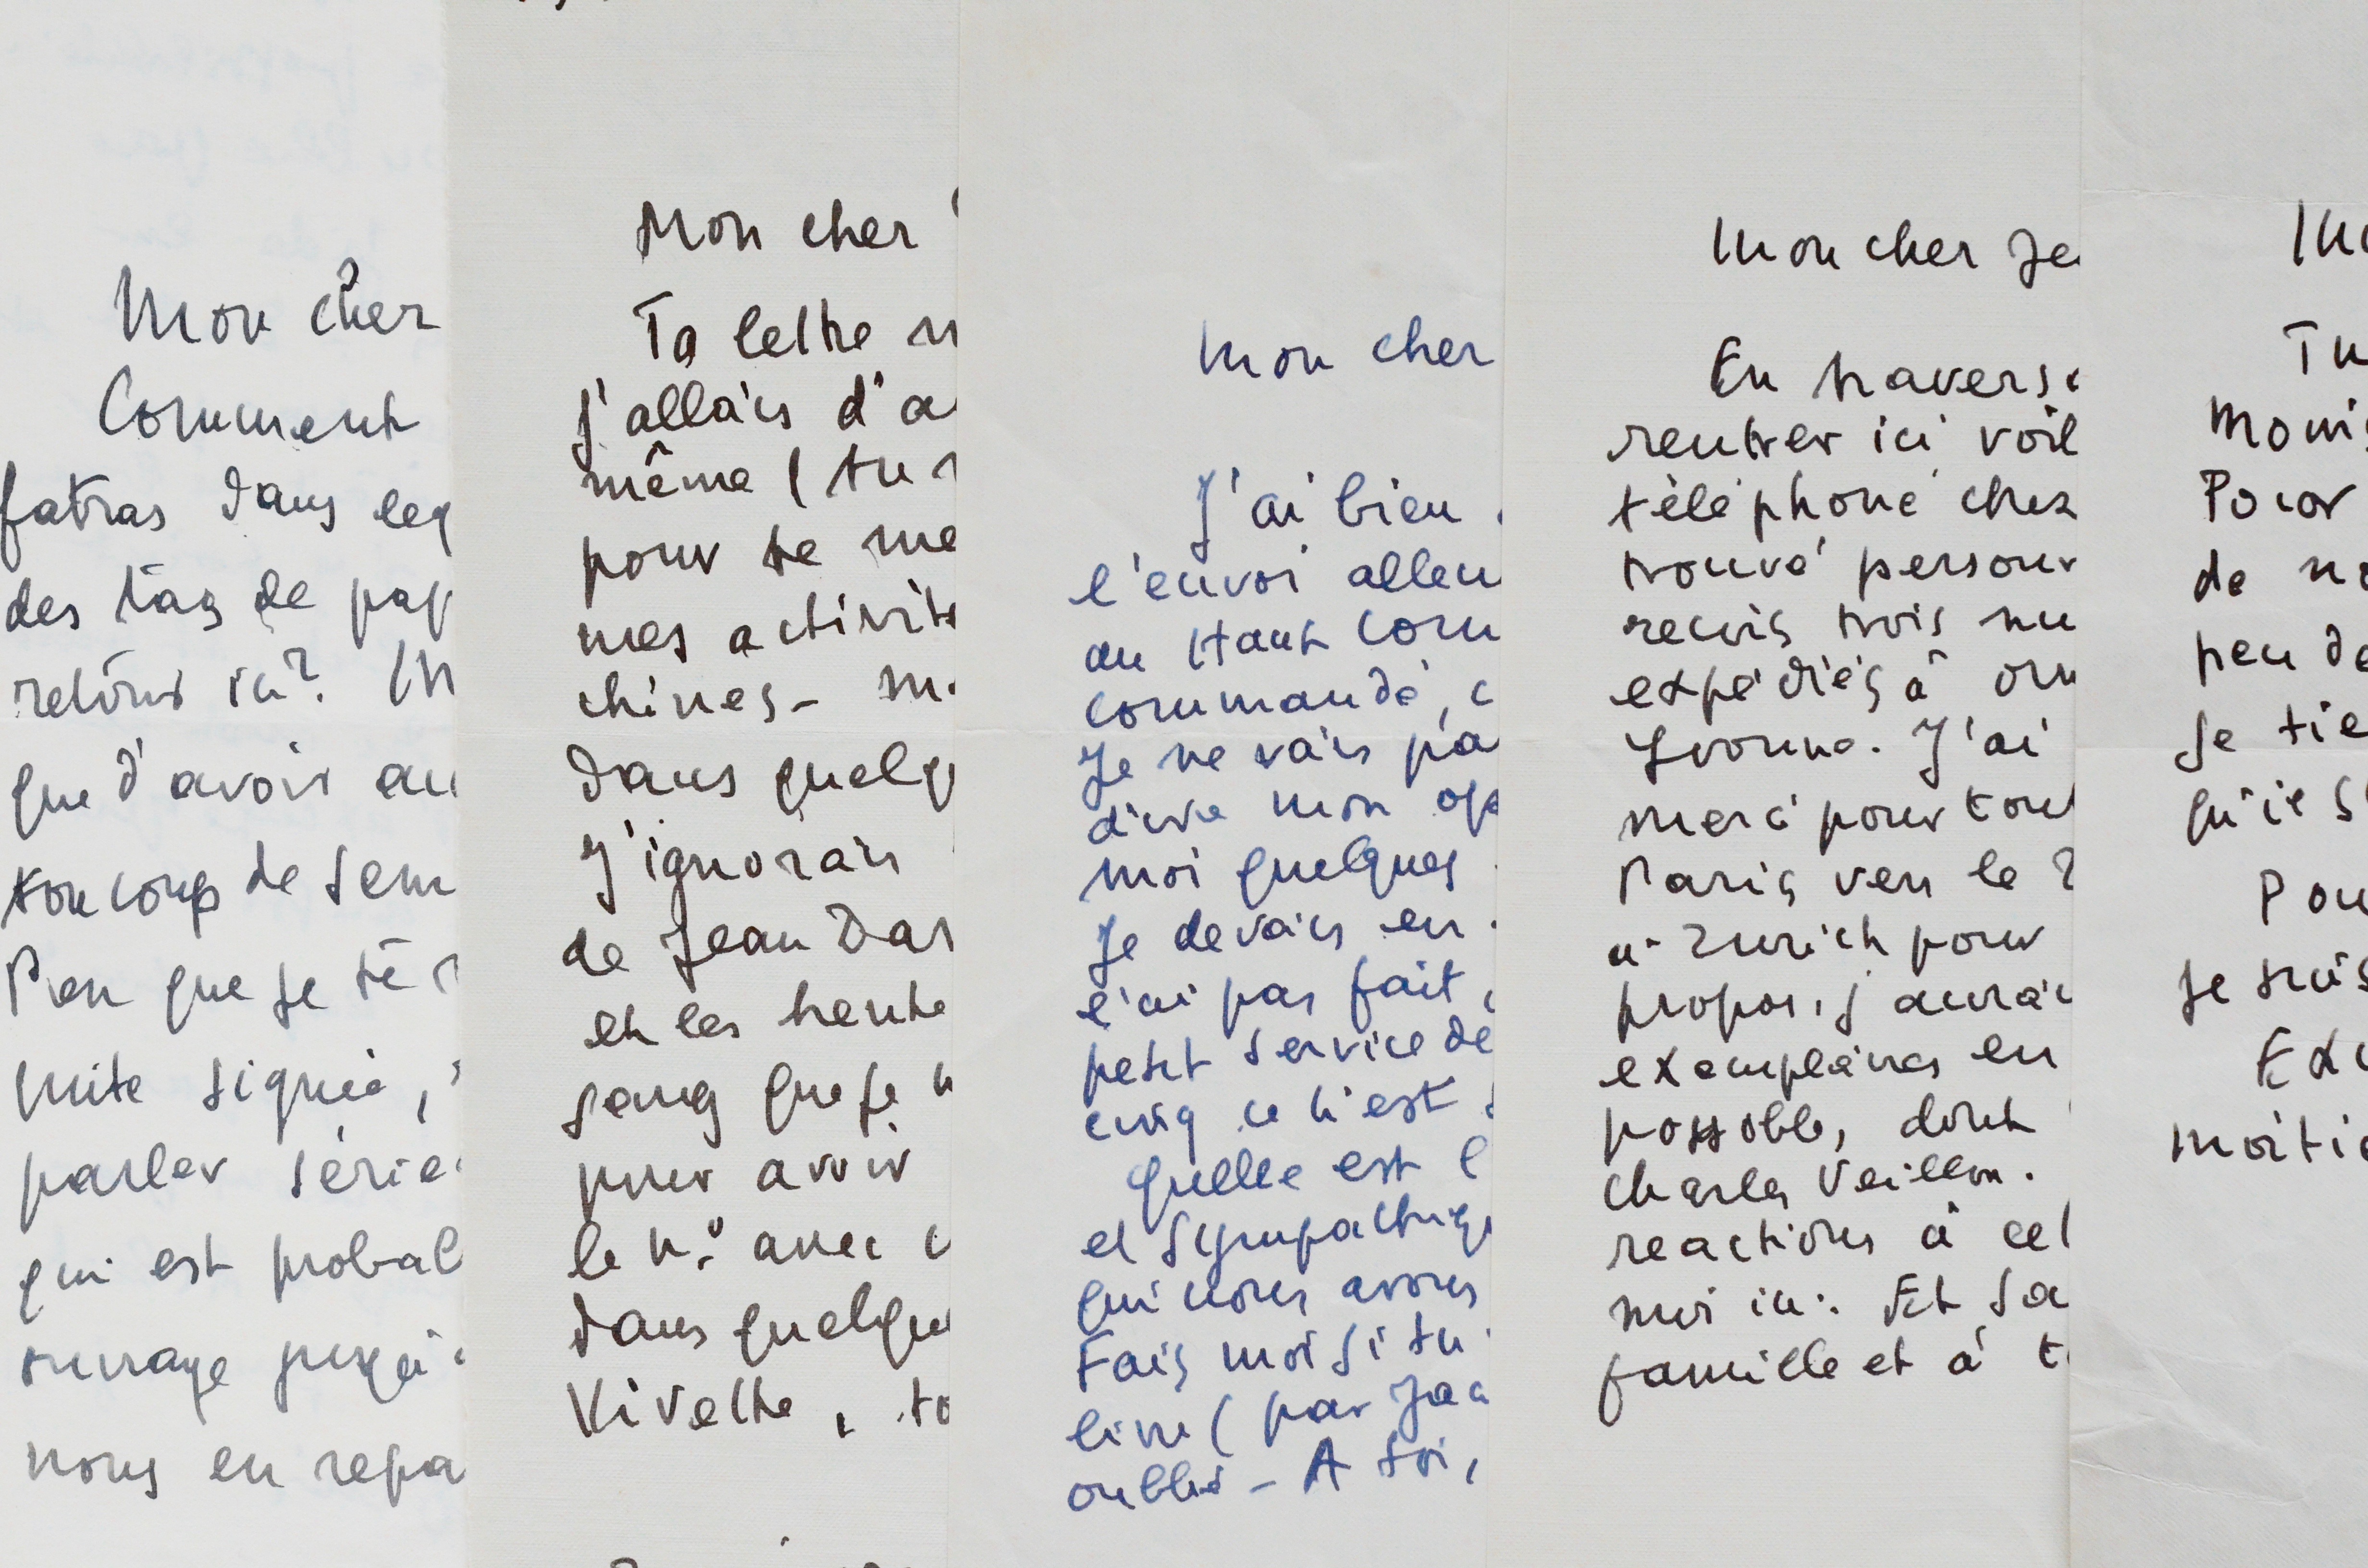 Mon cher
Comment
fatras dans leq
des tas de pap
retour ici? (M
que d'avoir au
ton coup de sem
Pen que je te
suite signée,
parler série
qui est probabl
ouvrage jusqu'à
nous en repa
Mon cher
Ta lettre m
j'allais d'a
même (tu
pour te me
mes activité
chines - m
dans quelq
J'ignorais
de Jean Dar
et les heute
sang que je
pour avoir
le n° avec
dans quelque
Vivette, to
Mon cher
J'ai bien
l'envoi allem
au Haut Com
commandé, c
Je ne vais pa
d'ive mon op
moi quelques
Je devais en
l'ai pas fait,
petit service de
cinq ce n'est
Quelle est l
et sympathiq
qui nous avons
Fais moi si tu
livre (par Jac
oublié - A toi,
Mon cher Je
En traverse
rentrer ici voil
téléphoné chez
trouvé personn
recuis trois nu
expédiés à
Yvonne. J'ai
merci pour tout
Paris vers le 2
à Zurich pour
propos, j'aurai
exemplaires en
possoble, dont
Charles Veillon.
reactions à cet
moi ici. Et sa
famille et à t
Mo
Tu
moins
Pour
de no
peu de
se tie
qu'il s
Pou
je suis
Exc
moitié